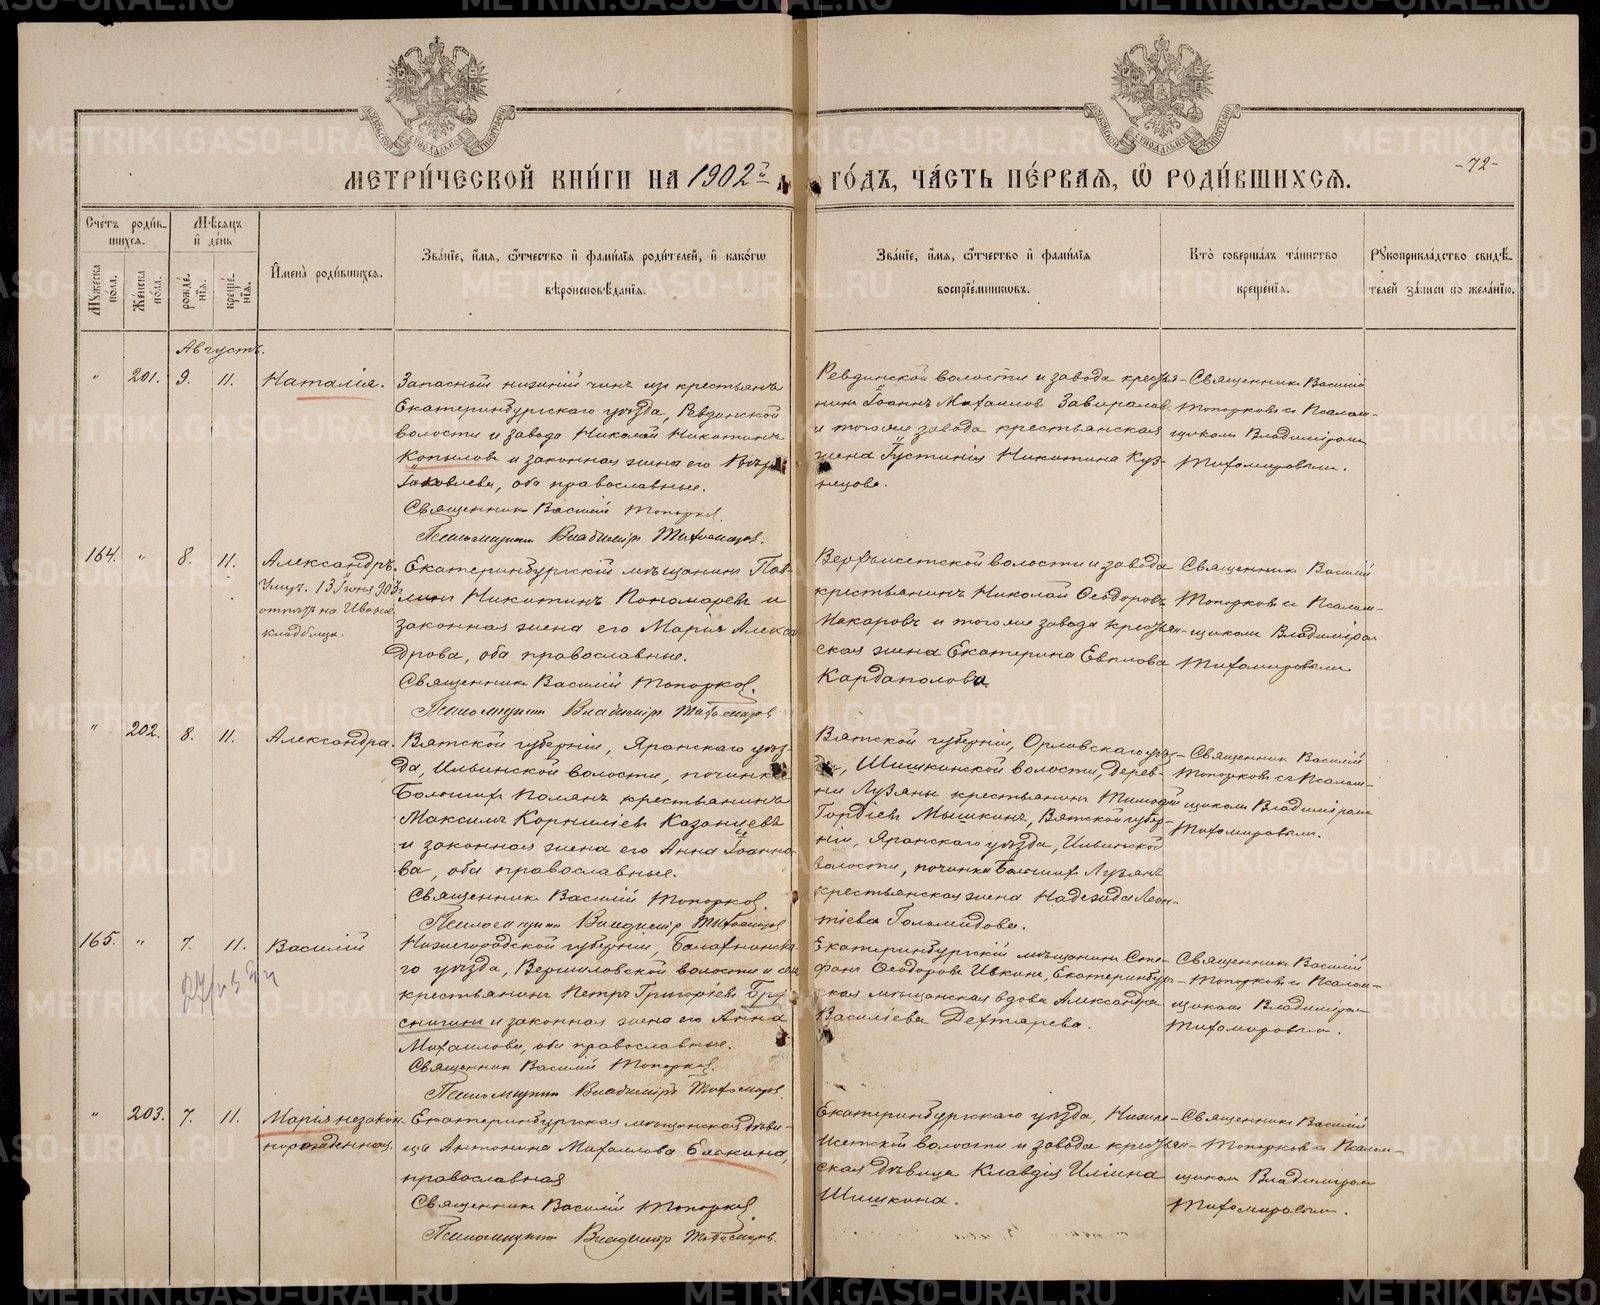 МЕТРИ́ЧЕСКОЙ КНИ́ГИ НА 1902й ГО́ДЪ, ЧА́СТЬ ПЕ́РВАЯ, Ѽ РОДИ́ВШИХСЯ.
-72-
Сче́тъ роди́в-
шихся.
Мужеска по́ла.
Же́нска по́ла.
Мѣ́сяцъ
и де́нь
рожде́-
нія.
креще́-
нія.
Имена̀ роди́вшихся.
Зва́ніе, и́мя, ѻтчество и фами́лія роди́телей, и како́гѡ
вѣроисповѣ́данія.
Зва́ніе, и́мя, ѻтчество и фами́лія
воспріе́мниковъ.
Кто̀ соверша́лъ та́инство
креще́нія.
Рукоприкла́дство свидѣ́-
телей за́писи по жела́нію.
Августъ.
" 201. 9. 11. Наталія.
Запасный нижній чинъ изъ крестьянъ
Екатеринбургскаго уѣзда, Ревдинской
волости и завода Николай Никитинъ
Копыловъ и законная жена его Вѣра
Іаковлева, оба православные.
Священникъ Василій Топорковъ.
Псаломщикъ Владиміръ Тихомировъ.
Ревдинской волости и завода крестья-
нинъ Іоаннъ Михаиловъ Завираловъ
и тогоже завода крестьянская
жена Іустинія Никитина Куз-
нецова.
Священникъ Василій
Топорковъ съ Псалом-
щикомъ Владиміромъ
Тихомировымъ.
164. " 8. 11. Александръ.
Умеръ. 13 Іюня 903 г.
отпѣтъ на Иванов.
кладбищѣ.
Екатеринбургскій мѣщанинъ Пав-
линъ Никитинъ Пономаревъ и
законная жена его Марія Алексан-
дрова, оба православные.
Священникъ Василій Топорковъ.
Псаломщикъ Владиміръ Тихомировъ
Верхъисетской волости и завода
крестьянинъ Николай Ѳеодоровъ
Макаровъ и тогоже завода крестьян-
ская жена Екатерина Евплова
Кардаполова.
Священникъ Василій
Топорковъ съ Псалом-
щикомъ Владиміромъ
Тихомировымъ
" 202. 8. 11. Александра.
Вятской губерніи, Яранскаго уѣз-
да, Ильинской волости, починка
Большихъ Полянъ крестьянинъ
Максимъ Корниліевъ Казанцевъ
и законная жена его Анна Іоанно-
ва, оба православные.
Священникъ Василій Топорковъ.
Псаломщикъ Владиміръ Тихомировъ
Вятской губерніи, Орловскаго уѣз-
да, Шишкинской волости, дерев-
ни Лузяны крестьянинъ Тимоѳей
Гордіевъ Мышкинъ, Вятской губер-
ніи, Яранскаго уѣзда, Ильинской
волости, починка Большихъ Лузянъ
крестьянская жена Надежда Леон-
тіева Голомидова.
Священникъ Василій
Топорковъ съ Псалом-
щикомъ Владиміромъ
Тихомировымъ.
165. " 7. 11. Василій
Нижегородской губерніи, Балахнинска-
го уѣзда, Вершиловской волости и села
крестьянинъ Петръ Григоріевъ Бру-
снигинъ и законная жена его Анна
Михаилова, оба православные.
Священникъ Василій Топорковъ.
Псаломщикъ Владиміръ Тихомировъ
Екатеринбургскій мѣщанинъ Сте-
фанъ Ѳеодоровъ Ивкинъ, Екатеринбург-
ская мѣщанская вдова Александра
Василіева Дехтярева.
Священникъ Василій
Топорковъ съ Псалом-
щикомъ Владиміромъ
Тихомировымъ.
" 203. 7. 11. Марія незакон-
норожденная.
Екатеринбургская мѣщанская дѣви-
ца Антонина Михаилова Елькина,
православная
Священникъ Василій Топорковъ
Псаломщикъ Владиміръ Тихомировъ.
Екатеринбургскаго уѣзда, Нижне-
Исетской волости и завода крестьян-
ская дѣвица Клавдія Иліина
Шишкина.
Священникъ Василій
Топорковъ съ Псалом-
щикомъ Владиміромъ
Тихомировымъ.
METRIKI.GASO-URAL.RU